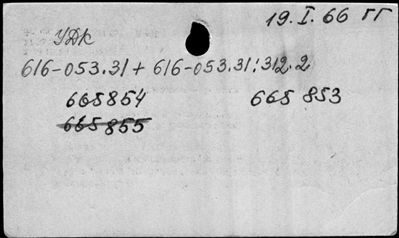 19.I.66 гг
УДК
616-053.31 + 616-053.31:312.2
665854 665 853
665855